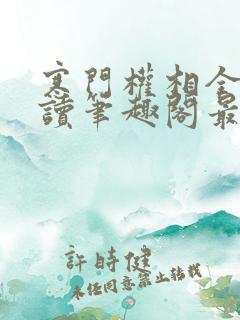 寒門權相全
讀筆趣閣最
許時健
未經同意禁止轉載